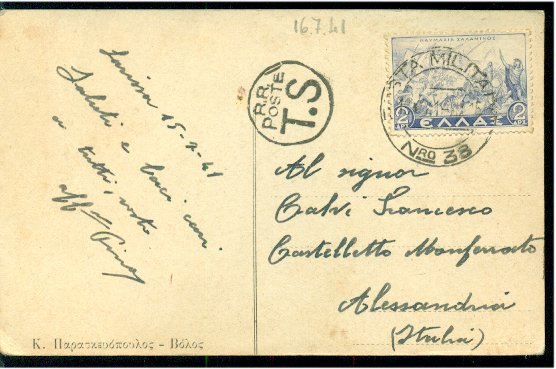 16.7.41
Larissa 15-7-41
Saluti e baci cari
a tutti, vostro
aff
R.R.
POSTE
T.S
ΝΑΥΜΑΧΙΑ ΣΑΛΑΜΙΝΟΣ
2 ΔΡ. ΕΛΛΑΣ 2 ΔΡ.
STA MILITA
NRO 38
Al signor
Calvi Francesco
Castelletto Monferrato
Alessandria
(Italia)
Κ. Παρασκευόπουλος - Βόλος